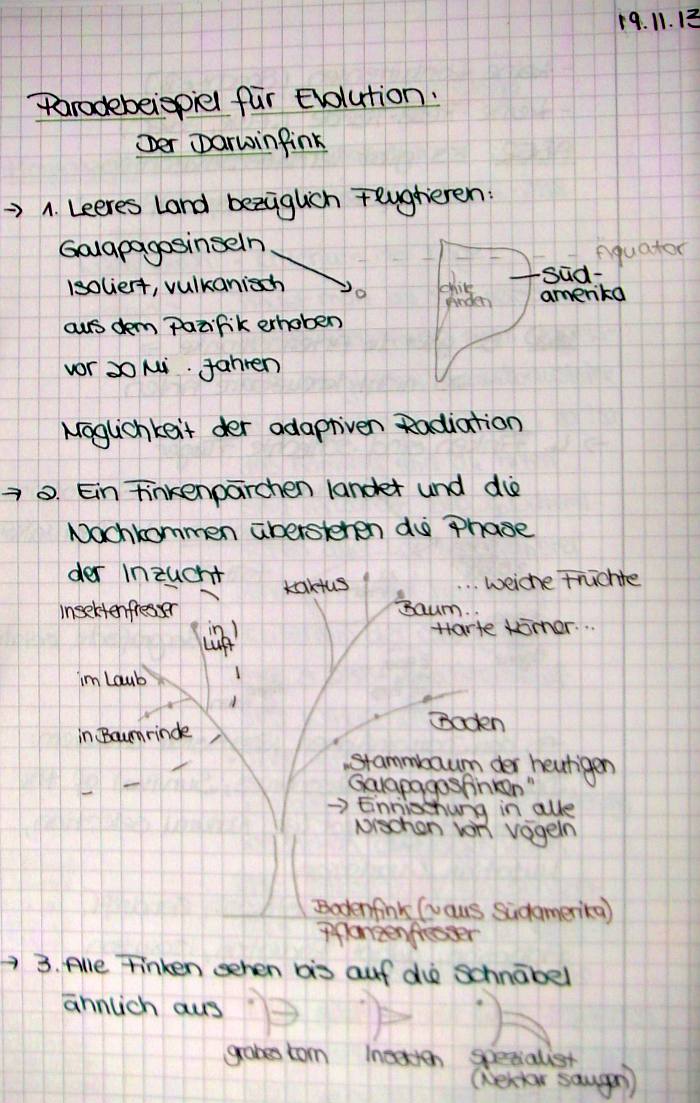 19.11.13
Paradebeispiel für Evolution:
Der Darwinfink
→ 1. Leeres Land bezüglich Flugtieren:
Galapagosinseln
Äquator
Isoliert, vulkanisch
Süd-
amerika
Anden
aus dem Pazifik erhoben
vor 20 Mi. Jahren
Möglichkeit der adaptiven Radiation
→ 2. Ein Finkenpärchen landet und die
Nachkommen überstehen die Phase
der Inzucht
Kaktus
...weiche Früchte
Insektenfresser
Baum..
in Luft
Harte Körner...
im Laub
Boden
in Baumrinde
„Stammbaum der heutigen
Galapagosfinken"
→ Einnischung in alle
Nischen von Vögeln
Bodenfink (~ aus Südamerika)
Pflanzenfresser
→ 3. Alle Finken sehen bis auf die Schnäbel
ähnlich aus
grobes Korn
Insekten
Spezialist
(Nektar saugen)